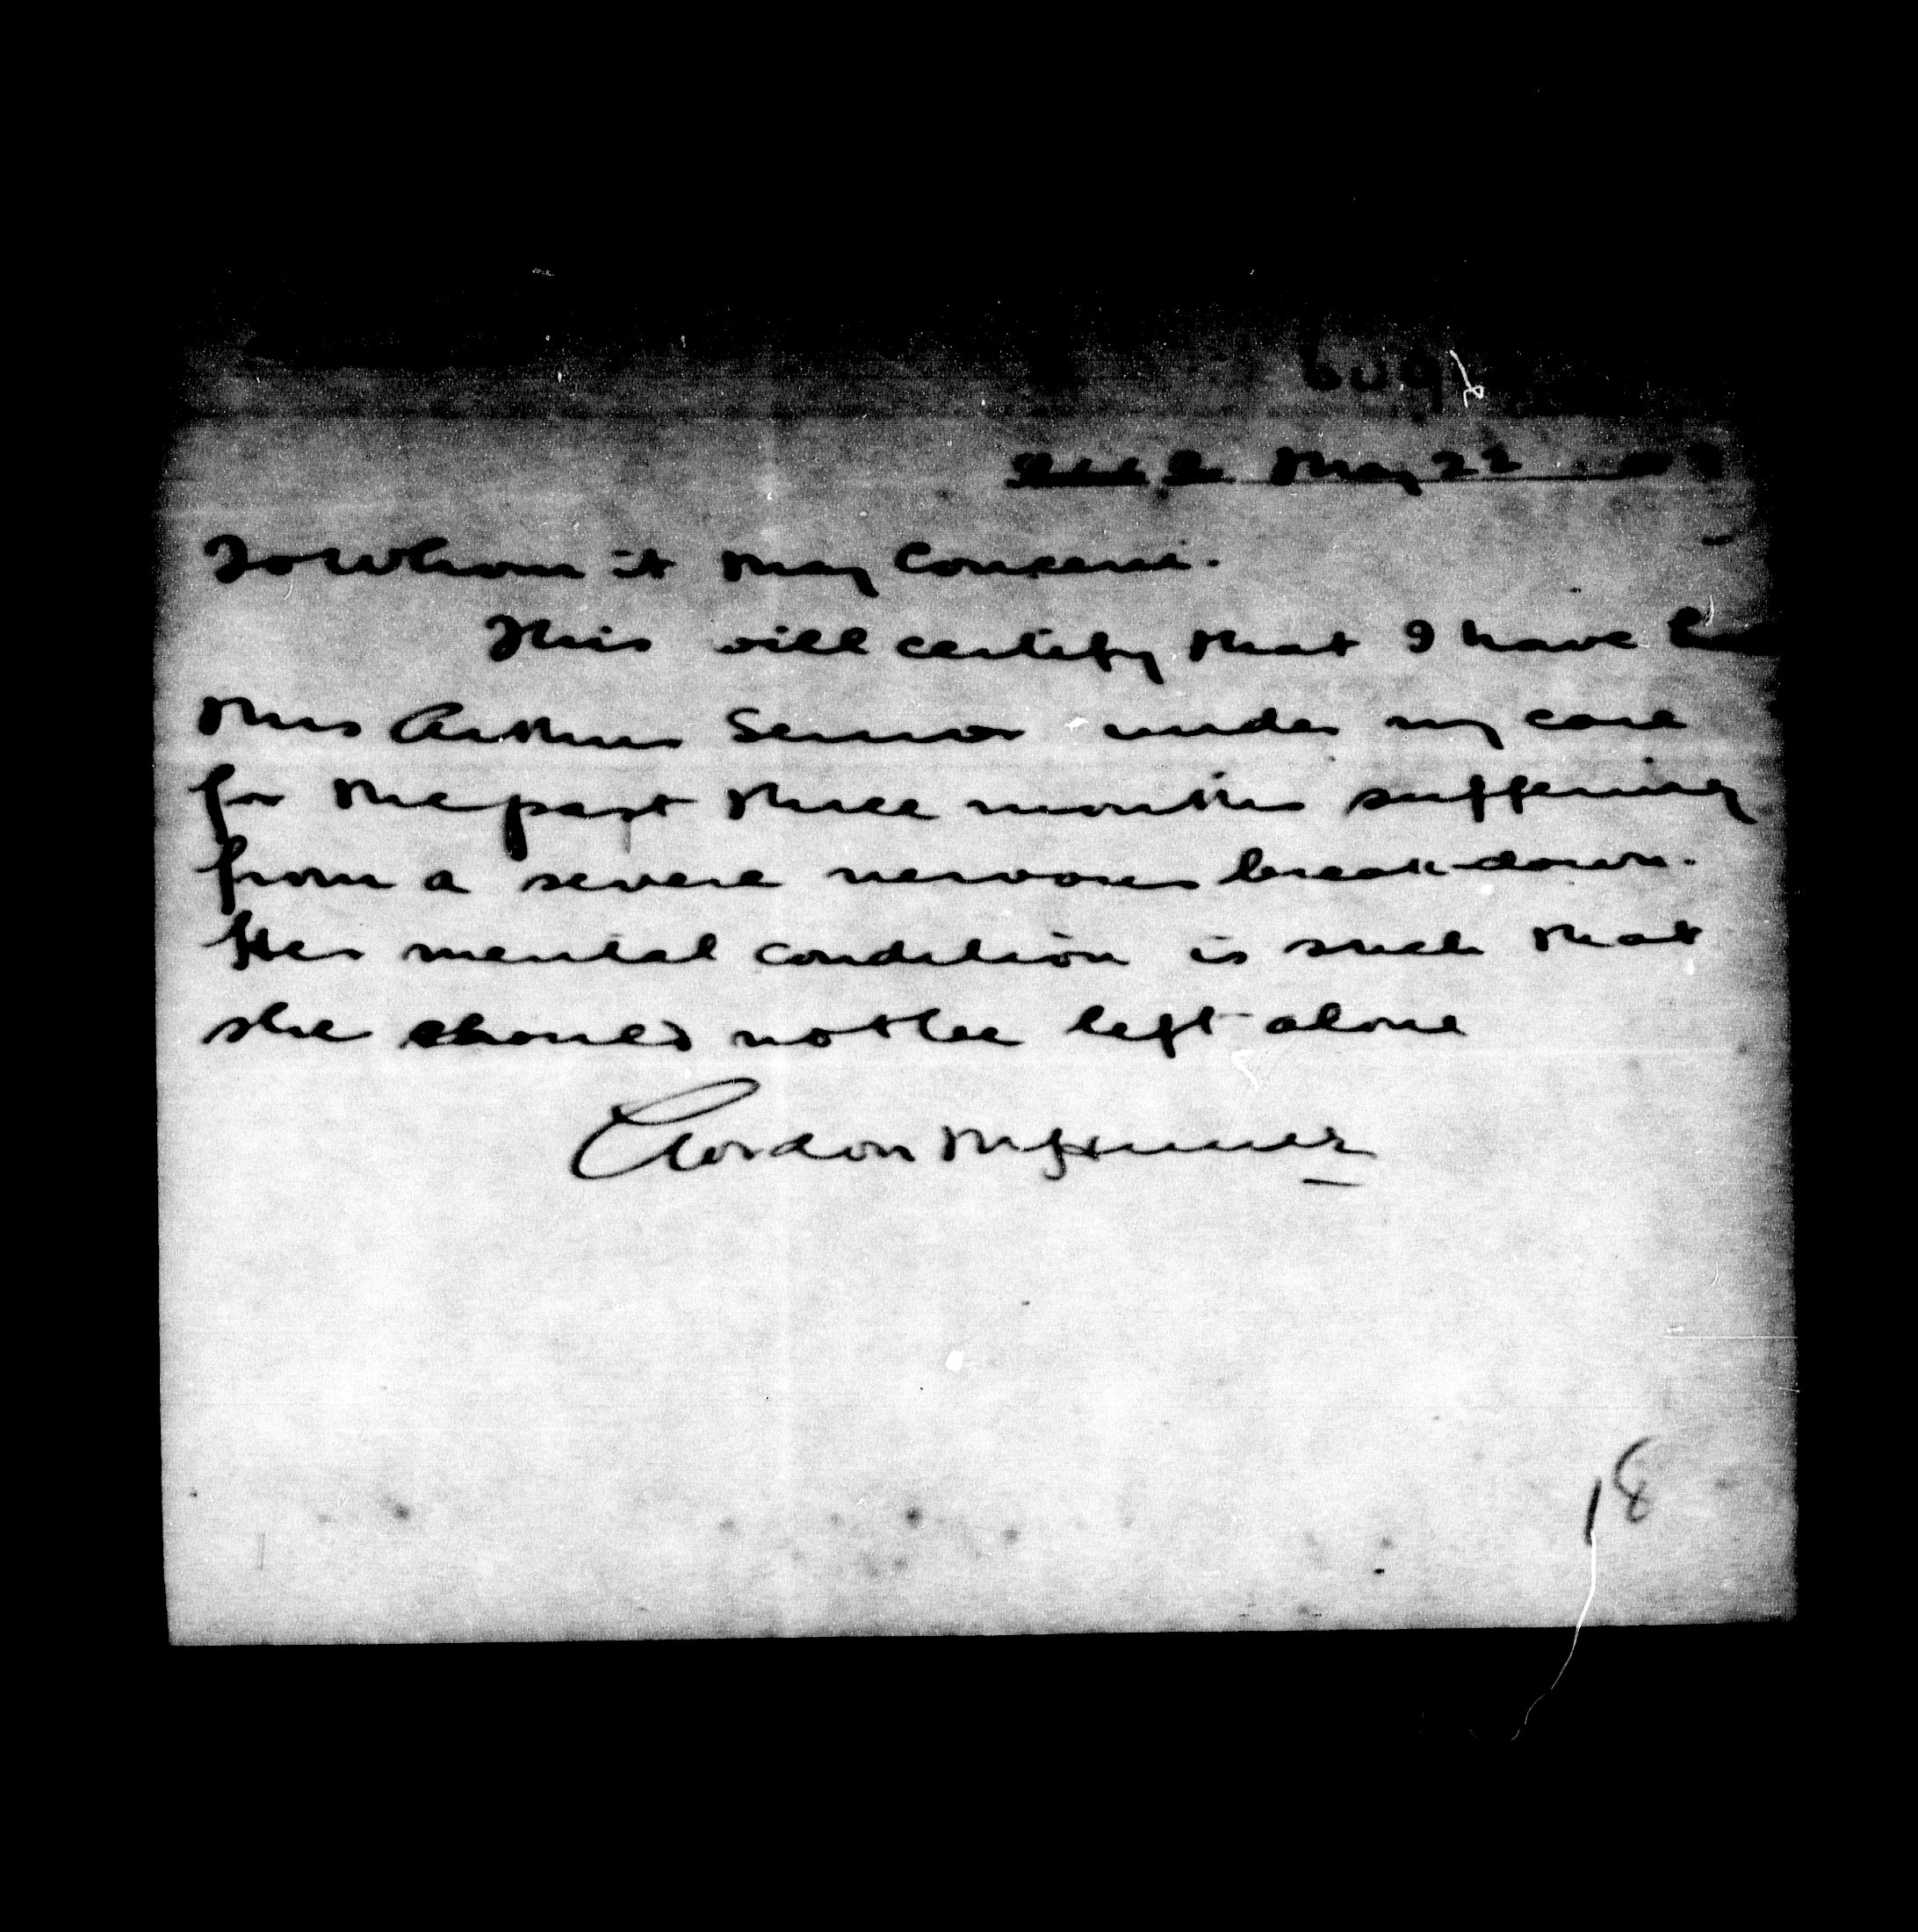 609
May 22
To Whom it May Concern.
This will certify that I have had
Mrs Arthur Senior under my care
for the past three months suffering
from a severe nervous break-down.
Her mental condition is such that
she should not be left alone
Gordon
18